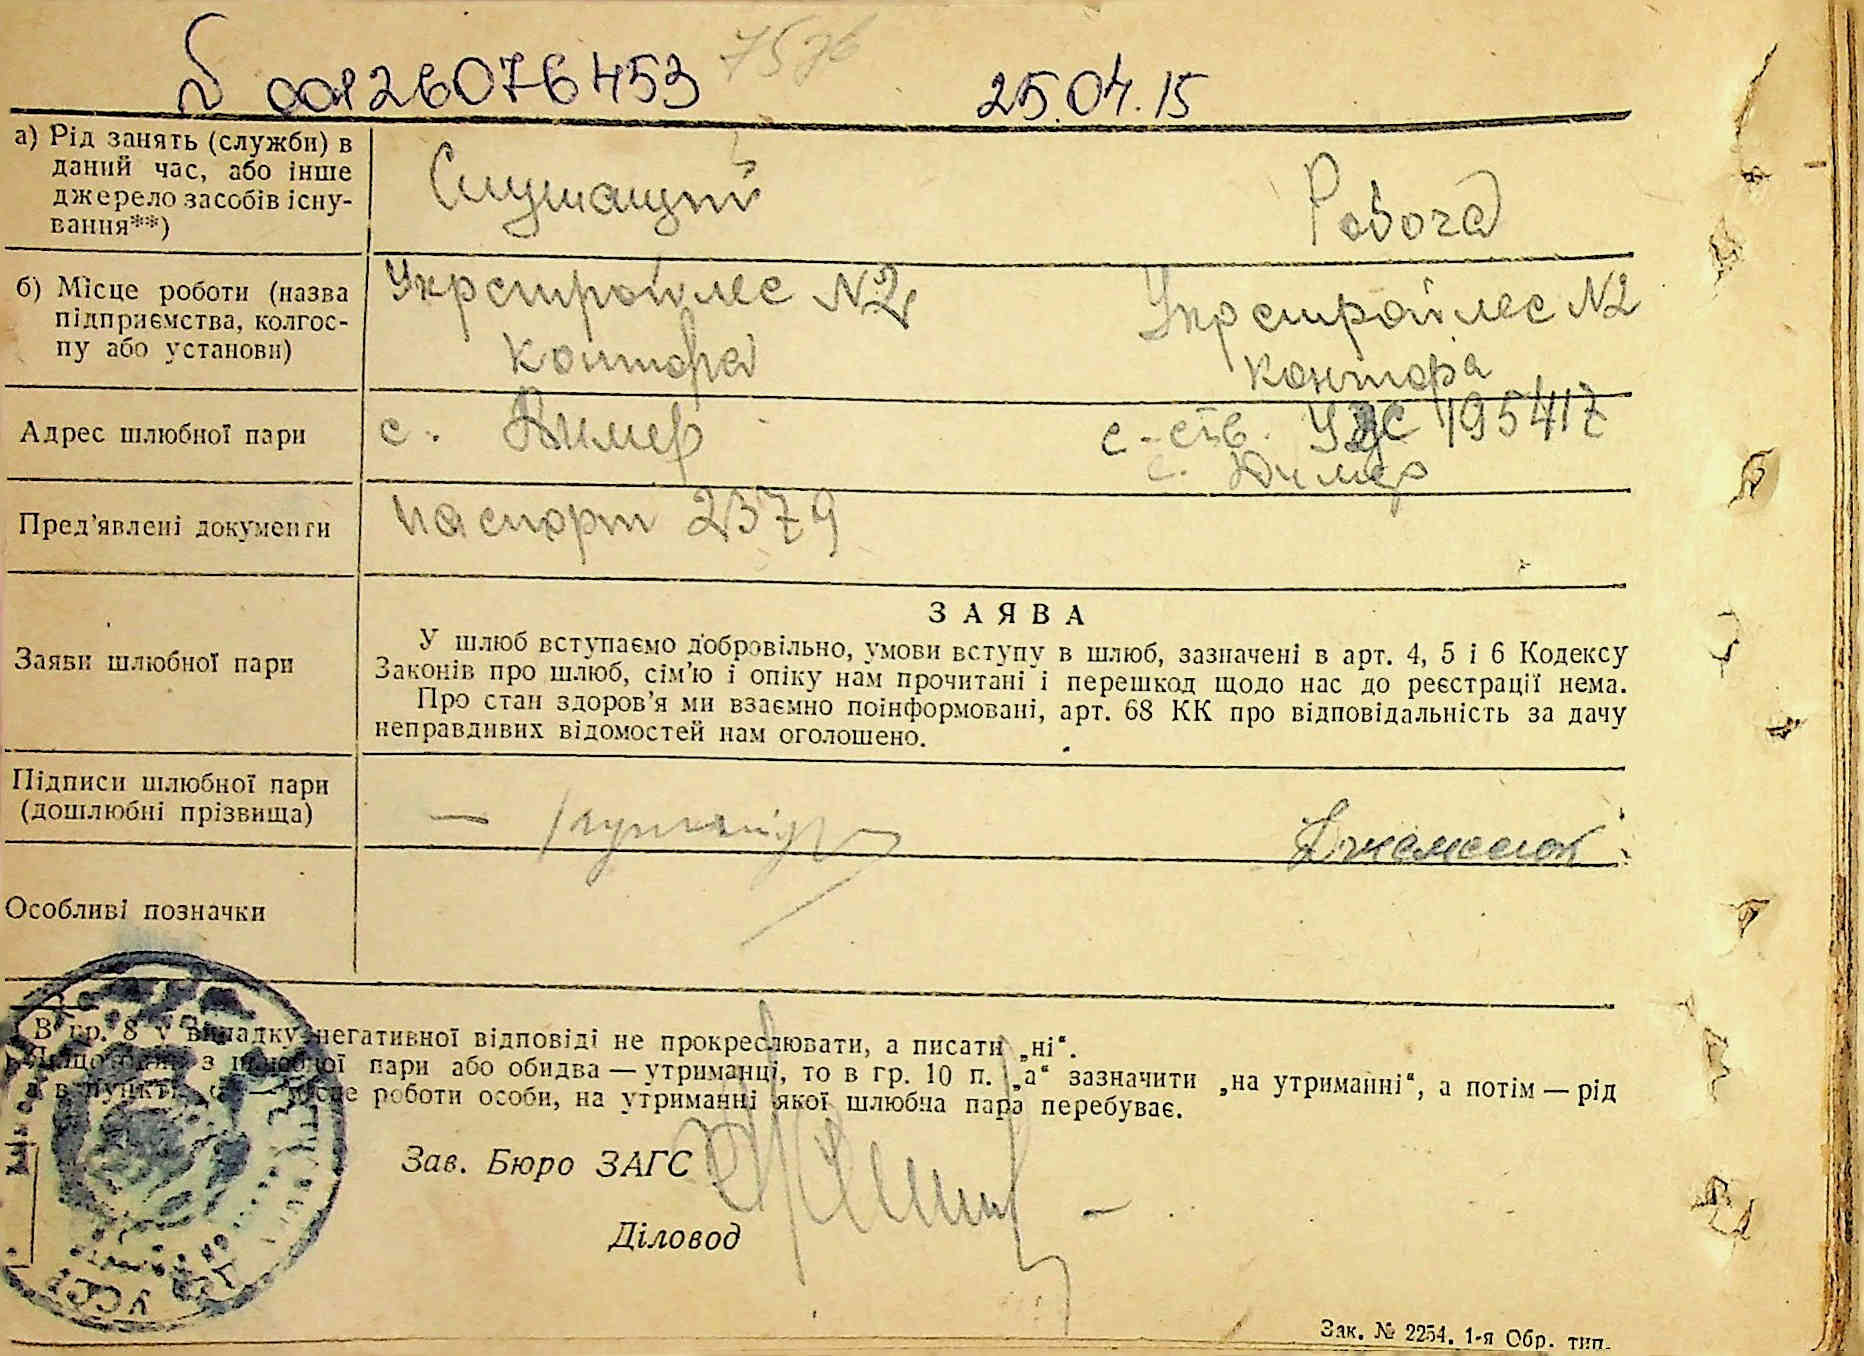 00126076453 25.04.15
а) Рід занять (служби) в
даний час, або інше
джерело засобів існу-
вання**)
Служащий
Робоча
б) Місце роботи (назва
підприємства, колгос-
пу або установи)
Укрстройлес N2
контора
Укрстройлес N2
контора
Адрес шлюбної пари
с. Димер
с-ств. 195417
с. Димер
Пред'явлені документи
паспорт 2379
Заяви шлюбної пари
ЗАЯВА
У шлюб вступаємо добровільно, умови вступу в шлюб, зазначені в арт. 4, 5 і 6 Кодексу
Законів про шлюб, сім'ю і опіку нам прочитані і перешкод щодо нас до реєстрації нема.
Про стан здоров'я ми взаємно поінформовані, арт. 68 КК про відповідальність за дачу
неправдивих відомостей нам оголошено.
Підписи шлюбної пари
(дошлюбні прізвища)
Особливі позначки
В гр. 8 у випадку негативної відповіді не прокреслювати, а писати „ні".
з шлюбної пари або обидва — утриманці, то в гр. 10 п. „а" зазначити „на утриманні", а потім — рід
в пункті — місце роботи особи, на утриманні якої шлюбна пара перебуває.
Зав. Бюро ЗАГС
Діловод
УССР
Зак. № 2254. 1-я Обр. тип.